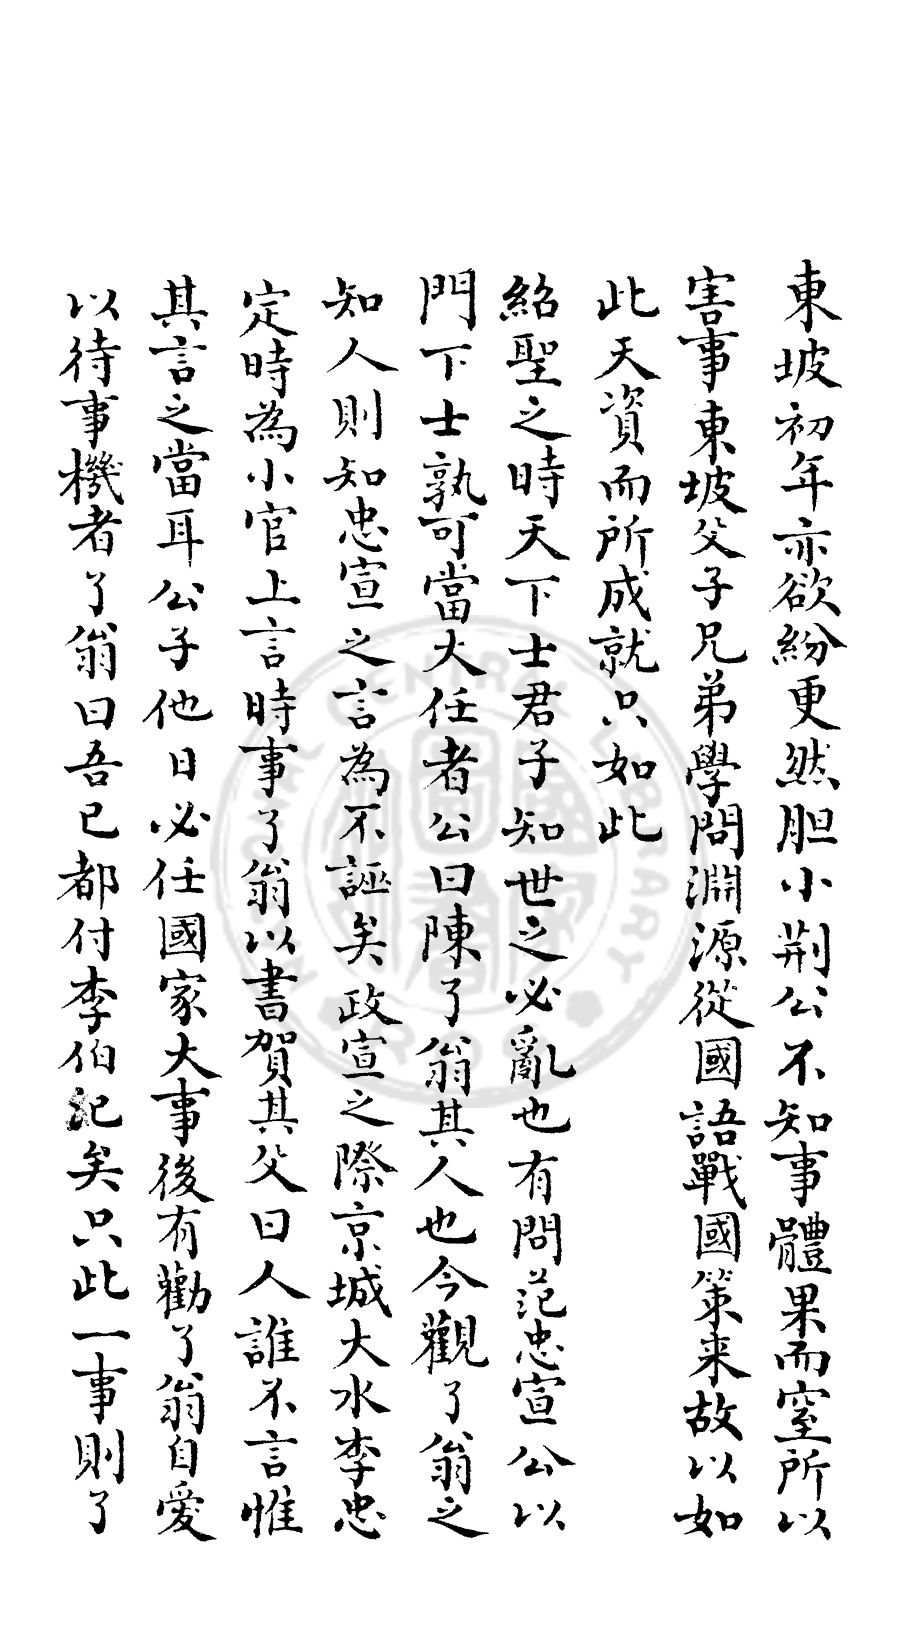 東坡初年亦欲紛更然胆小荆公不知事體果而窒所以
害事東坡父子兄弟學問淵源從國語戰國策来故以如
此天資而所成就只如此
紹聖之時天下士君子知世之必亂也有問范忠宣公以
門下士孰可當大任者公曰陳了翁其人也今觀了翁之
知人則知忠宣之言為不誣矣政宣之際京城大水李忠
定時為小官上言時事了翁以書賀其父曰人誰不言惟
其言之當耳公子他日必任國家大事後有勸了翁自愛
以待事機者了翁曰吾已都付李伯紀矣只此一事則了
NATIONAL CENTRAL LIBRARY